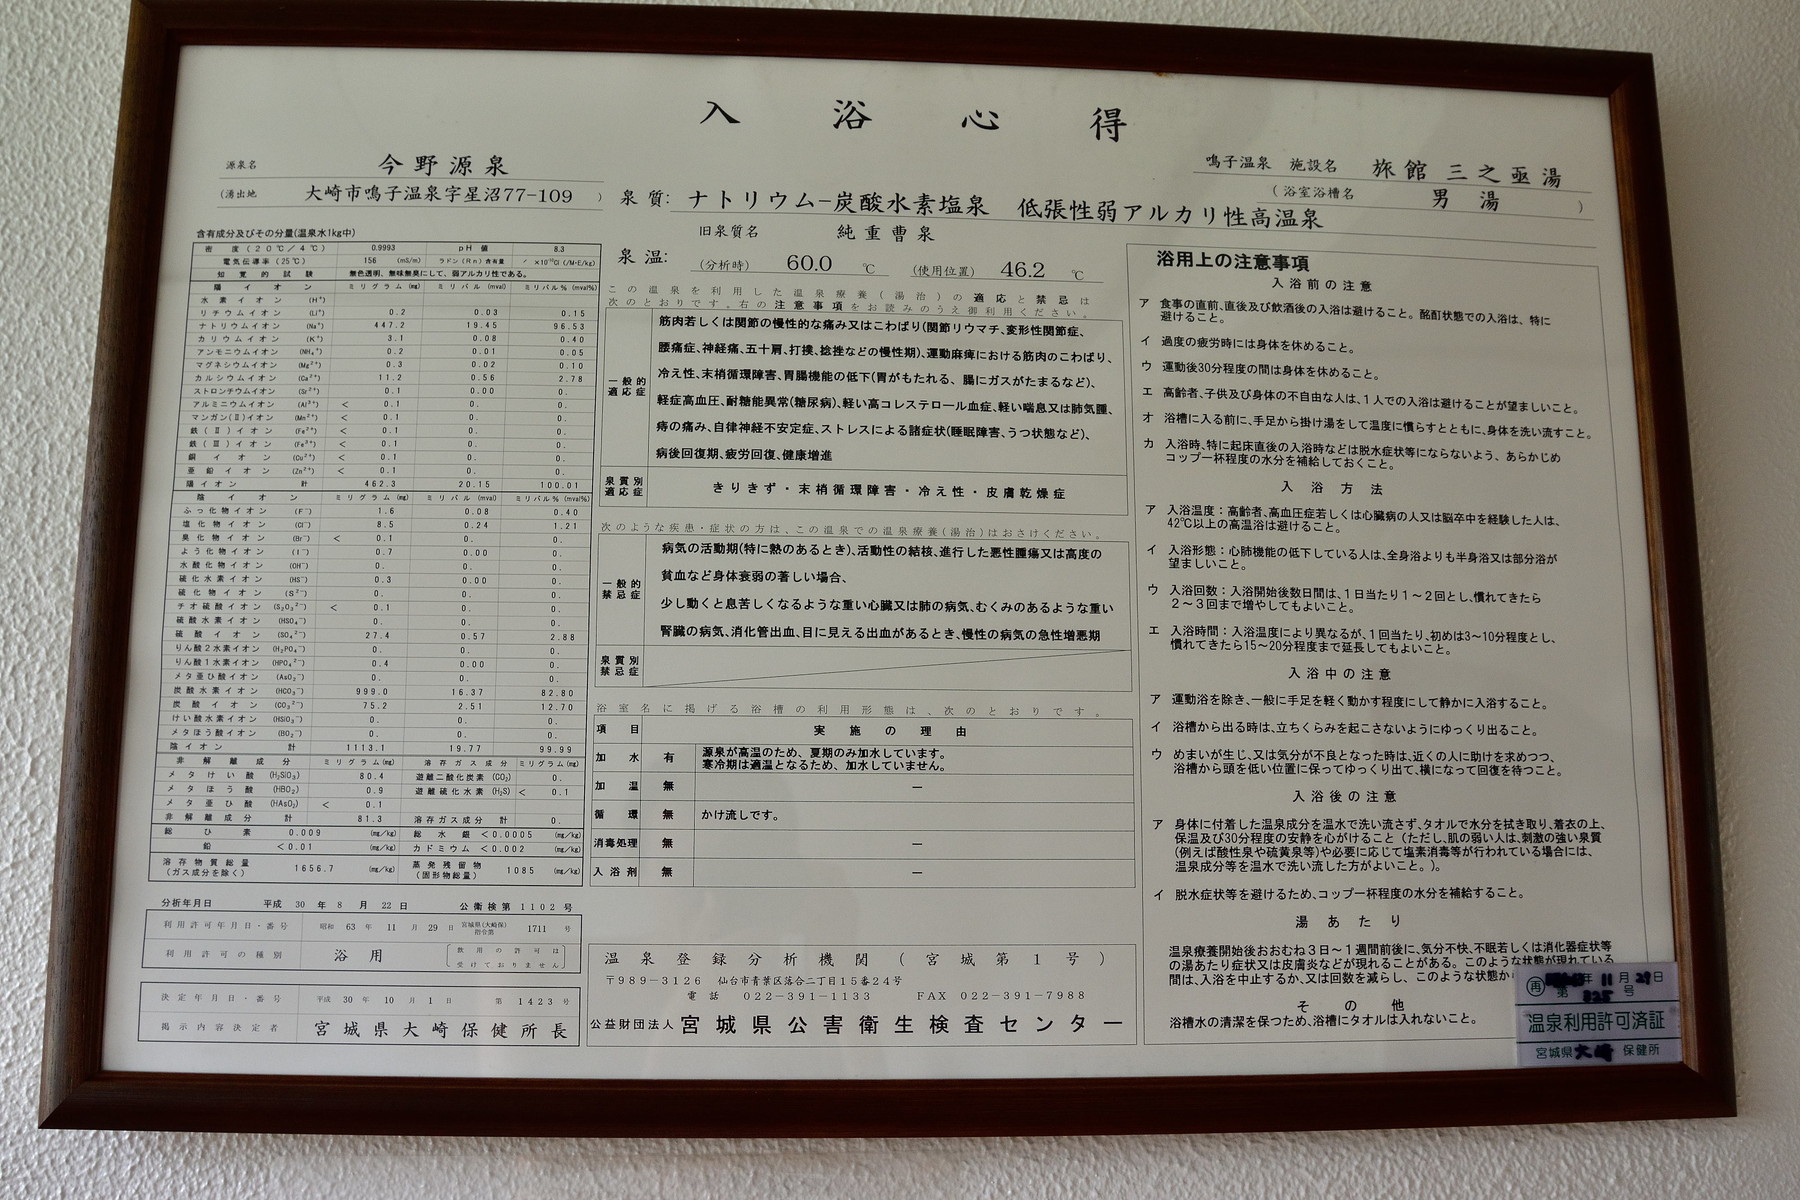 入浴心得
源泉名 今野源泉
(湧出地 大崎市鳴子温泉字星沼77-109 )
鳴子温泉 施設名 旅館 三之亟湯
(浴室浴槽名 男湯 )
泉質: ナトリウム-炭酸水素塩泉 低張性弱アルカリ性高温泉
旧泉質名 純重曹泉
泉温: (分析時) 60.0 ℃ (使用位置) 46.2 ℃
含有成分及びその分量(温泉水1kg中)
密度(20℃/4℃) 0.9993 pH値 8.3
電気伝導率(25℃) 156 (mS/m) ラドン(Rn)含有量
知覚的試験 無色透明、無味無臭にして、弱アルカリ性である。
陽イオン ミリグラム(mg) ミリバル(mval) ミリバル%(mval%)
水素イオン (H⁺)
リチウムイオン (Li⁺) 0.2 0.03 0.15
ナトリウムイオン (Na⁺) 447.2 19.45 96.53
カリウムイオン (K⁺) 3.1 0.08 0.40
アンモニウムイオン (NH₄⁺) 0.2 0.01 0.05
マグネシウムイオン (Mg²⁺) 0.3 0.02 0.10
カルシウムイオン (Ca²⁺) 11.2 0.56 2.78
ストロンチウムイオン (Sr²⁺) 0.1 0.00 0.
アルミニウムイオン (Al³⁺) < 0.1 0. 0.
マンガン(Ⅱ)イオン (Mn²⁺) < 0.1 0. 0.
鉄(Ⅱ)イオン (Fe²⁺) < 0.1 0. 0.
鉄(Ⅲ)イオン (Fe³⁺) < 0.1 0. 0.
銅イオン (Cu²⁺) < 0.1 0. 0.
亜鉛イオン (Zn²⁺) < 0.1 0. 0.
陽イオン計 462.3 20.15 100.01
陰イオン ミリグラム(mg) ミリバル(mval) ミリバル%(mval%)
ふっ化物イオン (F⁻) 1.6 0.08 0.40
塩化物イオン (Cl⁻) 8.5 0.24 1.21
臭化物イオン (Br⁻) < 0.1 0. 0.
よう化物イオン (I⁻) 0.7 0.00 0.
水酸化物イオン (OH⁻) 0. 0. 0.
硫化水素イオン (HS⁻) 0.3 0.00 0.
硫化物イオン (S²⁻) 0. 0. 0.
チオ硫酸イオン (S₂O₃²⁻) < 0.1 0. 0.
硫酸水素イオン (HSO₄⁻) 0. 0. 0.
硫酸イオン (SO₄²⁻) 27.4 0.57 2.88
りん酸2水素イオン (H₂PO₄⁻) 0. 0. 0.
りん酸1水素イオン (HPO₄²⁻) 0.4 0.00 0.
メタ亜ひ酸イオン (AsO₂⁻) 0. 0. 0.
炭酸水素イオン (HCO₃⁻) 999.0 16.37 82.80
炭酸イオン (CO₃²⁻) 75.2 2.51 12.70
けい酸水素イオン (HSiO₃⁻) 0. 0. 0.
メタほう酸イオン (BO₂⁻) 0. 0. 0.
陰イオン計 1113.1 19.77 99.99
非解離成分 ミリグラム(mg) 溶存ガス成分 ミリグラム(mg)
メタけい酸 (H₂SiO₃) 80.4 遊離二酸化炭素 (CO₂) 0.
メタほう酸 (HBO₂) 0.9 遊離硫化水素 (H₂S) < 0.1
メタ亜ひ酸 (HAsO₂) < 0.1
非解離成分計 81.3 溶存ガス成分計 0.
総ひ素 0.009 (mg/kg) 総水銀 <0.0005 (mg/kg)
鉛 <0.01 (mg/kg) カドミウム <0.002 (mg/kg)
溶存物質総量 (ガス成分を除く) 1656.7 (mg/kg) 蒸発残留物 (固形物総量) 1085 (mg/kg)
分析年月日 平成 30 年 8 月 22 日 公衛検第 1102 号
利用許可年月日・番号 昭和 63 年 11 月 29 日 宮城県(大崎保)指令第 1711 号
利用許可の種別 浴用 [飲用の許可は受けておりません]
決定年月日・番号 平成 30 年 10 月 1 日 第 1423 号
掲示内容決定者 宮城県大崎保健所長
この温泉を利用した温泉療養(湯治)の適応と禁忌は
次のとおりです。右の注意事項をお読みのうえ御利用ください。
一般的適応症
筋肉若しくは関節の慢性的な痛み又はこわばり(関節リウマチ、変形性関節症、
腰痛症、神経痛、五十肩、打撲、捻挫などの慢性期)、運動麻痺における筋肉のこわばり、
冷え性、末梢循環障害、胃腸機能の低下(胃がもたれる、腸にガスがたまるなど)、
軽症高血圧、耐糖能異常(糖尿病)、軽い高コレステロール血症、軽い喘息又は肺気腫、
痔の痛み、自律神経不安定症、ストレスによる諸症状(睡眠障害、うつ状態など)、
病後回復期、疲労回復、健康増進
泉質別適応症 きりきず・末梢循環障害・冷え性・皮膚乾燥症
次のような疾患・症状の方は、この温泉での温泉療養(湯治)はおさけください。
一般的禁忌症
病気の活動期(特に熱のあるとき)、活動性の結核、進行した悪性腫瘍又は高度の
貧血など身体衰弱の著しい場合、
少し動くと息苦しくなるような重い心臓又は肺の病気、むくみのあるような重い
腎臓の病気、消化管出血、目に見える出血があるとき、慢性の病気の急性増悪期
泉質別禁忌症
浴室名に掲げる浴槽の利用形態は、次のとおりです。
項目 実施の理由
加水 有 源泉が高温のため、夏期のみ加水しています。
寒冷期は適温となるため、加水していません。
加温 無 ―
循環 無 かけ流しです。
消毒処理 無 ―
入浴剤 無 ―
温泉登録分析機関(宮城第1号)
〒989-3126 仙台市青葉区落合二丁目15番24号
電話 022-391-1133 FAX 022-391-7988
公益財団法人 宮城県公害衛生検査センター
浴用上の注意事項
入浴前の注意
ア 食事の直前、直後及び飲酒後の入浴は避けること。酩酊状態での入浴は、特に
避けること。
イ 過度の疲労時には身体を休めること。
ウ 運動後30分程度の間は身体を休めること。
エ 高齢者、子供及び身体の不自由な人は、1人での入浴は避けることが望ましいこと。
オ 浴槽に入る前に、手足から掛け湯をして温度に慣らすとともに、身体を洗い流すこと。
カ 入浴時、特に起床直後の入浴時などは脱水症状等にならないよう、あらかじめ
コップ一杯程度の水分を補給しておくこと。
入浴方法
ア 入浴温度:高齢者、高血圧症若しくは心臓病の人又は脳卒中を経験した人は、
42℃以上の高温浴は避けること。
イ 入浴形態:心肺機能の低下している人は、全身浴よりも半身浴又は部分浴が
望ましいこと。
ウ 入浴回数:入浴開始後数日間は、1日当たり1~2回とし、慣れてきたら
2~3回まで増やしてもよいこと。
エ 入浴時間:入浴温度により異なるが、1回当たり、初めは3~10分程度とし、
慣れてきたら15~20分程度まで延長してもよいこと。
入浴中の注意
ア 運動浴を除き、一般に手足を軽く動かす程度にして静かに入浴すること。
イ 浴槽から出る時は、立ちくらみを起こさないようにゆっくり出ること。
ウ めまいが生じ、又は気分が不良となった時は、近くの人に助けを求めつつ、
浴槽から頭を低い位置に保ってゆっくり出て、横になって回復を待つこと。
入浴後の注意
ア 身体に付着した温泉成分を温水で洗い流さず、タオルで水分を拭き取り、着衣の上、
保温及び30分程度の安静を心がけること (ただし、肌の弱い人は、刺激の強い泉質
(例えば酸性泉や硫黄泉等)や必要に応じて塩素消毒等が行われている場合には、
温泉成分等を温水で洗い流した方がよいこと。)。
イ 脱水症状等を避けるため、コップ一杯程度の水分を補給すること。
湯あたり
温泉療養開始後おおむね3日~1週間前後に、気分不快、不眠若しくは消化器症状等
の湯あたり症状又は皮膚炎などが現れることがある。このような状態が現れている
間は、入浴を中止するか、又は回数を減らし、このような状態か
その他
浴槽水の清潔を保つため、浴槽にタオルは入れないこと。
再 年 11 月 29 日
第 825 号
温泉利用許可済証
宮城県 大崎 保健所